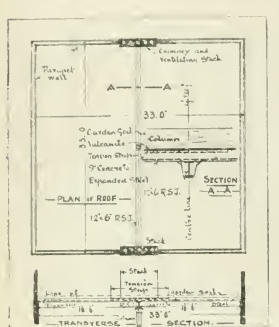 Chimney and
Ventilation Stack
Parapet
Wall
A — A
33.0"
33.0
Garden Soil
Vulcanite
Tension Straps
9" Concrete
Expanded Steel
Column
12"x6" R.S.J.
SECTION
A-A
PLAN OF ROOF
12"x6" R.S.J.
Centre line
Stack
Stack
Tension
Straps
Line of
garden soil
16' 6"
33' 0"
16' 6"
TRANSVERSE SECTION.